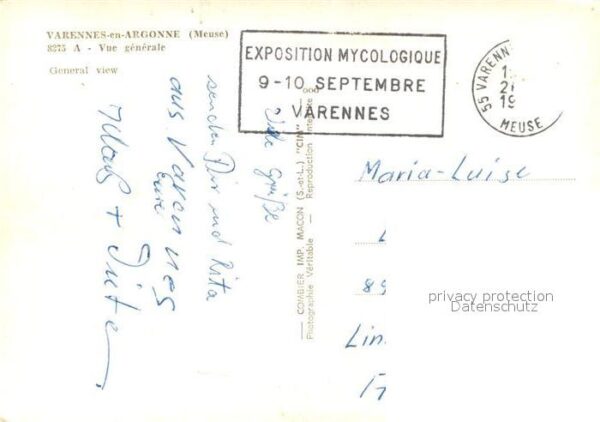 VARENNES-en-ARGONNE (Meuse)
8275 A - Vue générale
General view
EXPOSITION MYCOLOGIQUE
9-10 SEPTEMBRE
VARENNES
55 VARENN
1
21
19
MEUSE
Viele Grüße
senden Dir und Rita
aus Varennes
Eure
Klaus + Dieter
— COMBIER IMP. MACON (S.-et-L.) "CIM" —
Photographie Véritable - Reproduction Interdite
Maria-Luise
L
89
Lin
privacy protection
Datenschutz